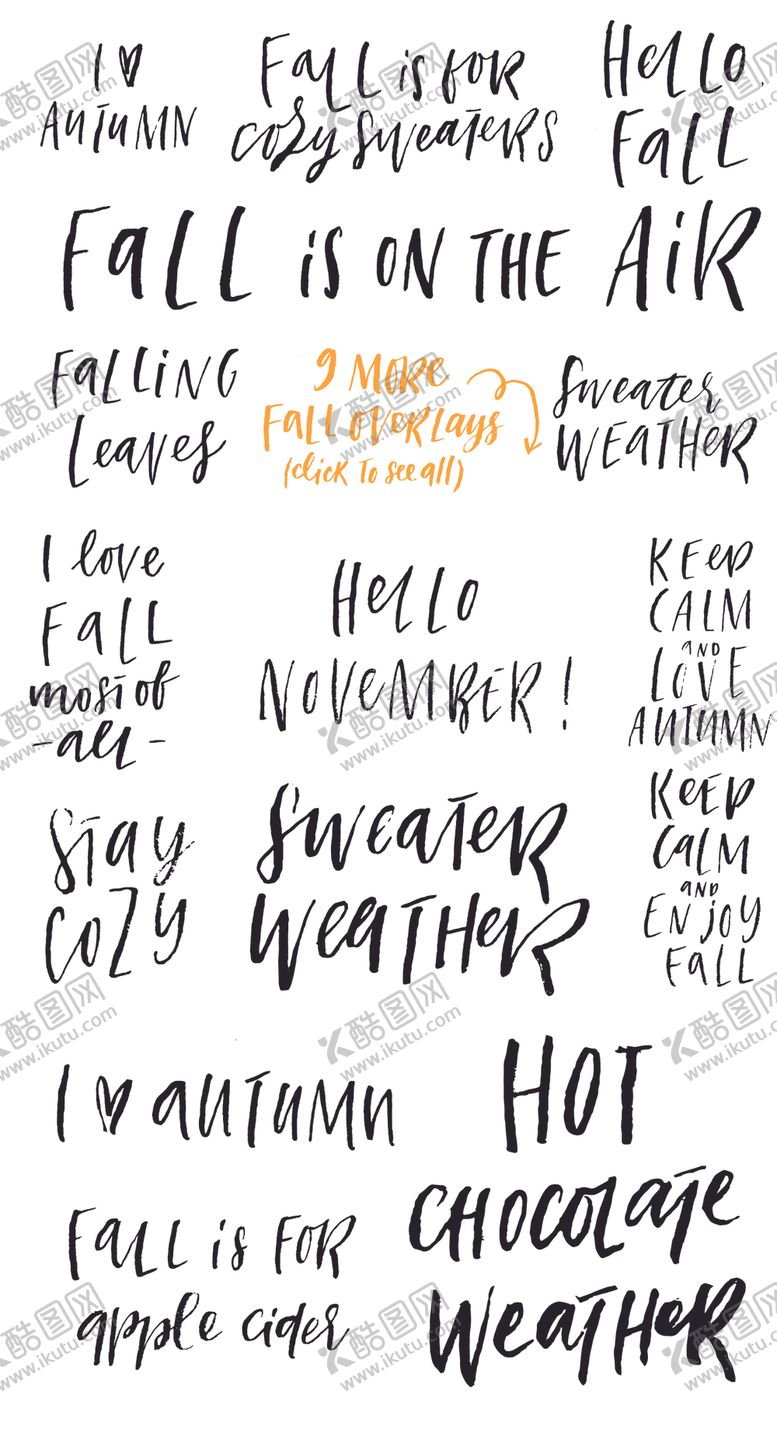 I ♥
AUTUMN
Fall is for
cozy sweaters
Hello
Fall
Fall is on the Air
Falling
leaves
9 more
Fall overlays
(click to see all)
Sweater
Weather
I love
Fall
most of
-all-
Hello
November!
Keep
calm
and
love
autumn
Stay
cozy
Sweater
Weather
Keep
calm
and
enjoy
fall
I ♥ autumn
Hot
chocolate
weather
Fall is for
apple cider
酷图网
www.ikutu.com